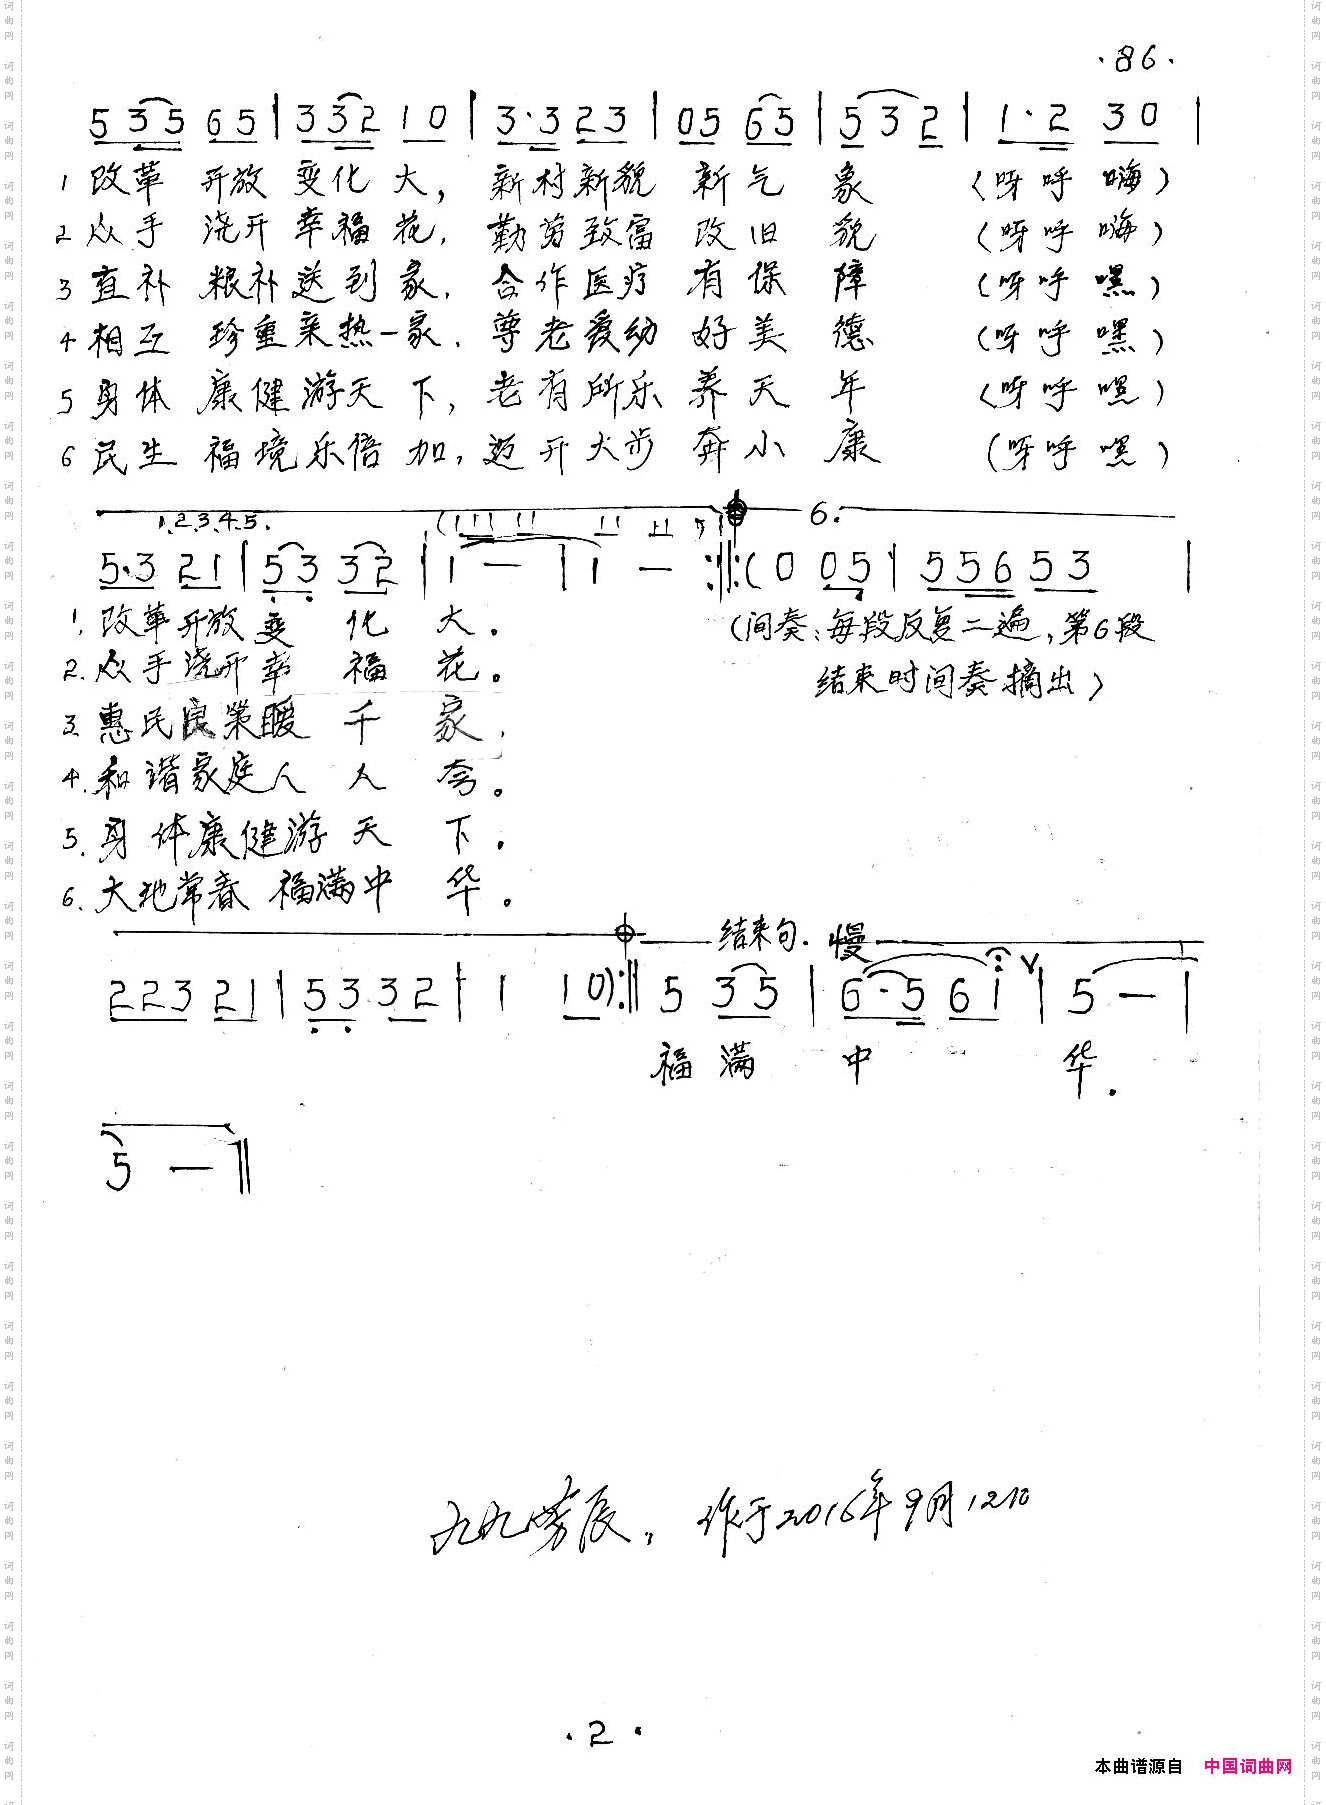 ·86·
5 3 5 6 5 | 3 3 2 1 0 | 3·3 2 3 | 0 5 6 5 | 5 3 2 | 1·2 3 0 |
1 改革 开放 变化 大, 新村新貌 新气 象 (呀呼 嗨)
2 众手 浇开 幸福 花, 勤劳致富 改旧 貌 (呀呼 嗨)
3 直补 粮补送到 家, 合作医疗 有保 障 (呀呼 嘿)
4 相互 珍重亲热一家, 尊老爱幼 好美 德 (呀呼 嘿)
5 身体 康健游天 下, 老有所乐 养天 年 (呀呼 嘿)
6 民生 福境乐倍 加, 迈开大步 奔小 康 (呀呼 嘿)
1.2.3.4.5. (1 1 1 1 1 1 1 1 1 6.
5·3 2 1 | 5 3 3 2 | 1 — | 1 — :‖:( 0 0 5 | 5 5 6 5 3 |
1. 改革开放变 化 大。 (间奏:每段反复二遍,第6段
2. 众手浇开幸 福 花。 结束时间奏摘出)
3. 惠民良策暖 千 家,
4. 和谐家庭人 人 夸。
5. 身体康健游 天 下。
6. 大地常春 福满中 华。
结束句. 慢
2 2 3 2 1 | 5 3 3 2 | 1 1 0) :‖ 5 3 5 | 6·5 6 1 V | 5 — |
福 满 中 华.
5 — ‖
九九芳辰, 作于2016年9月12日
·2·
本曲谱源自 中国词曲网
词曲网